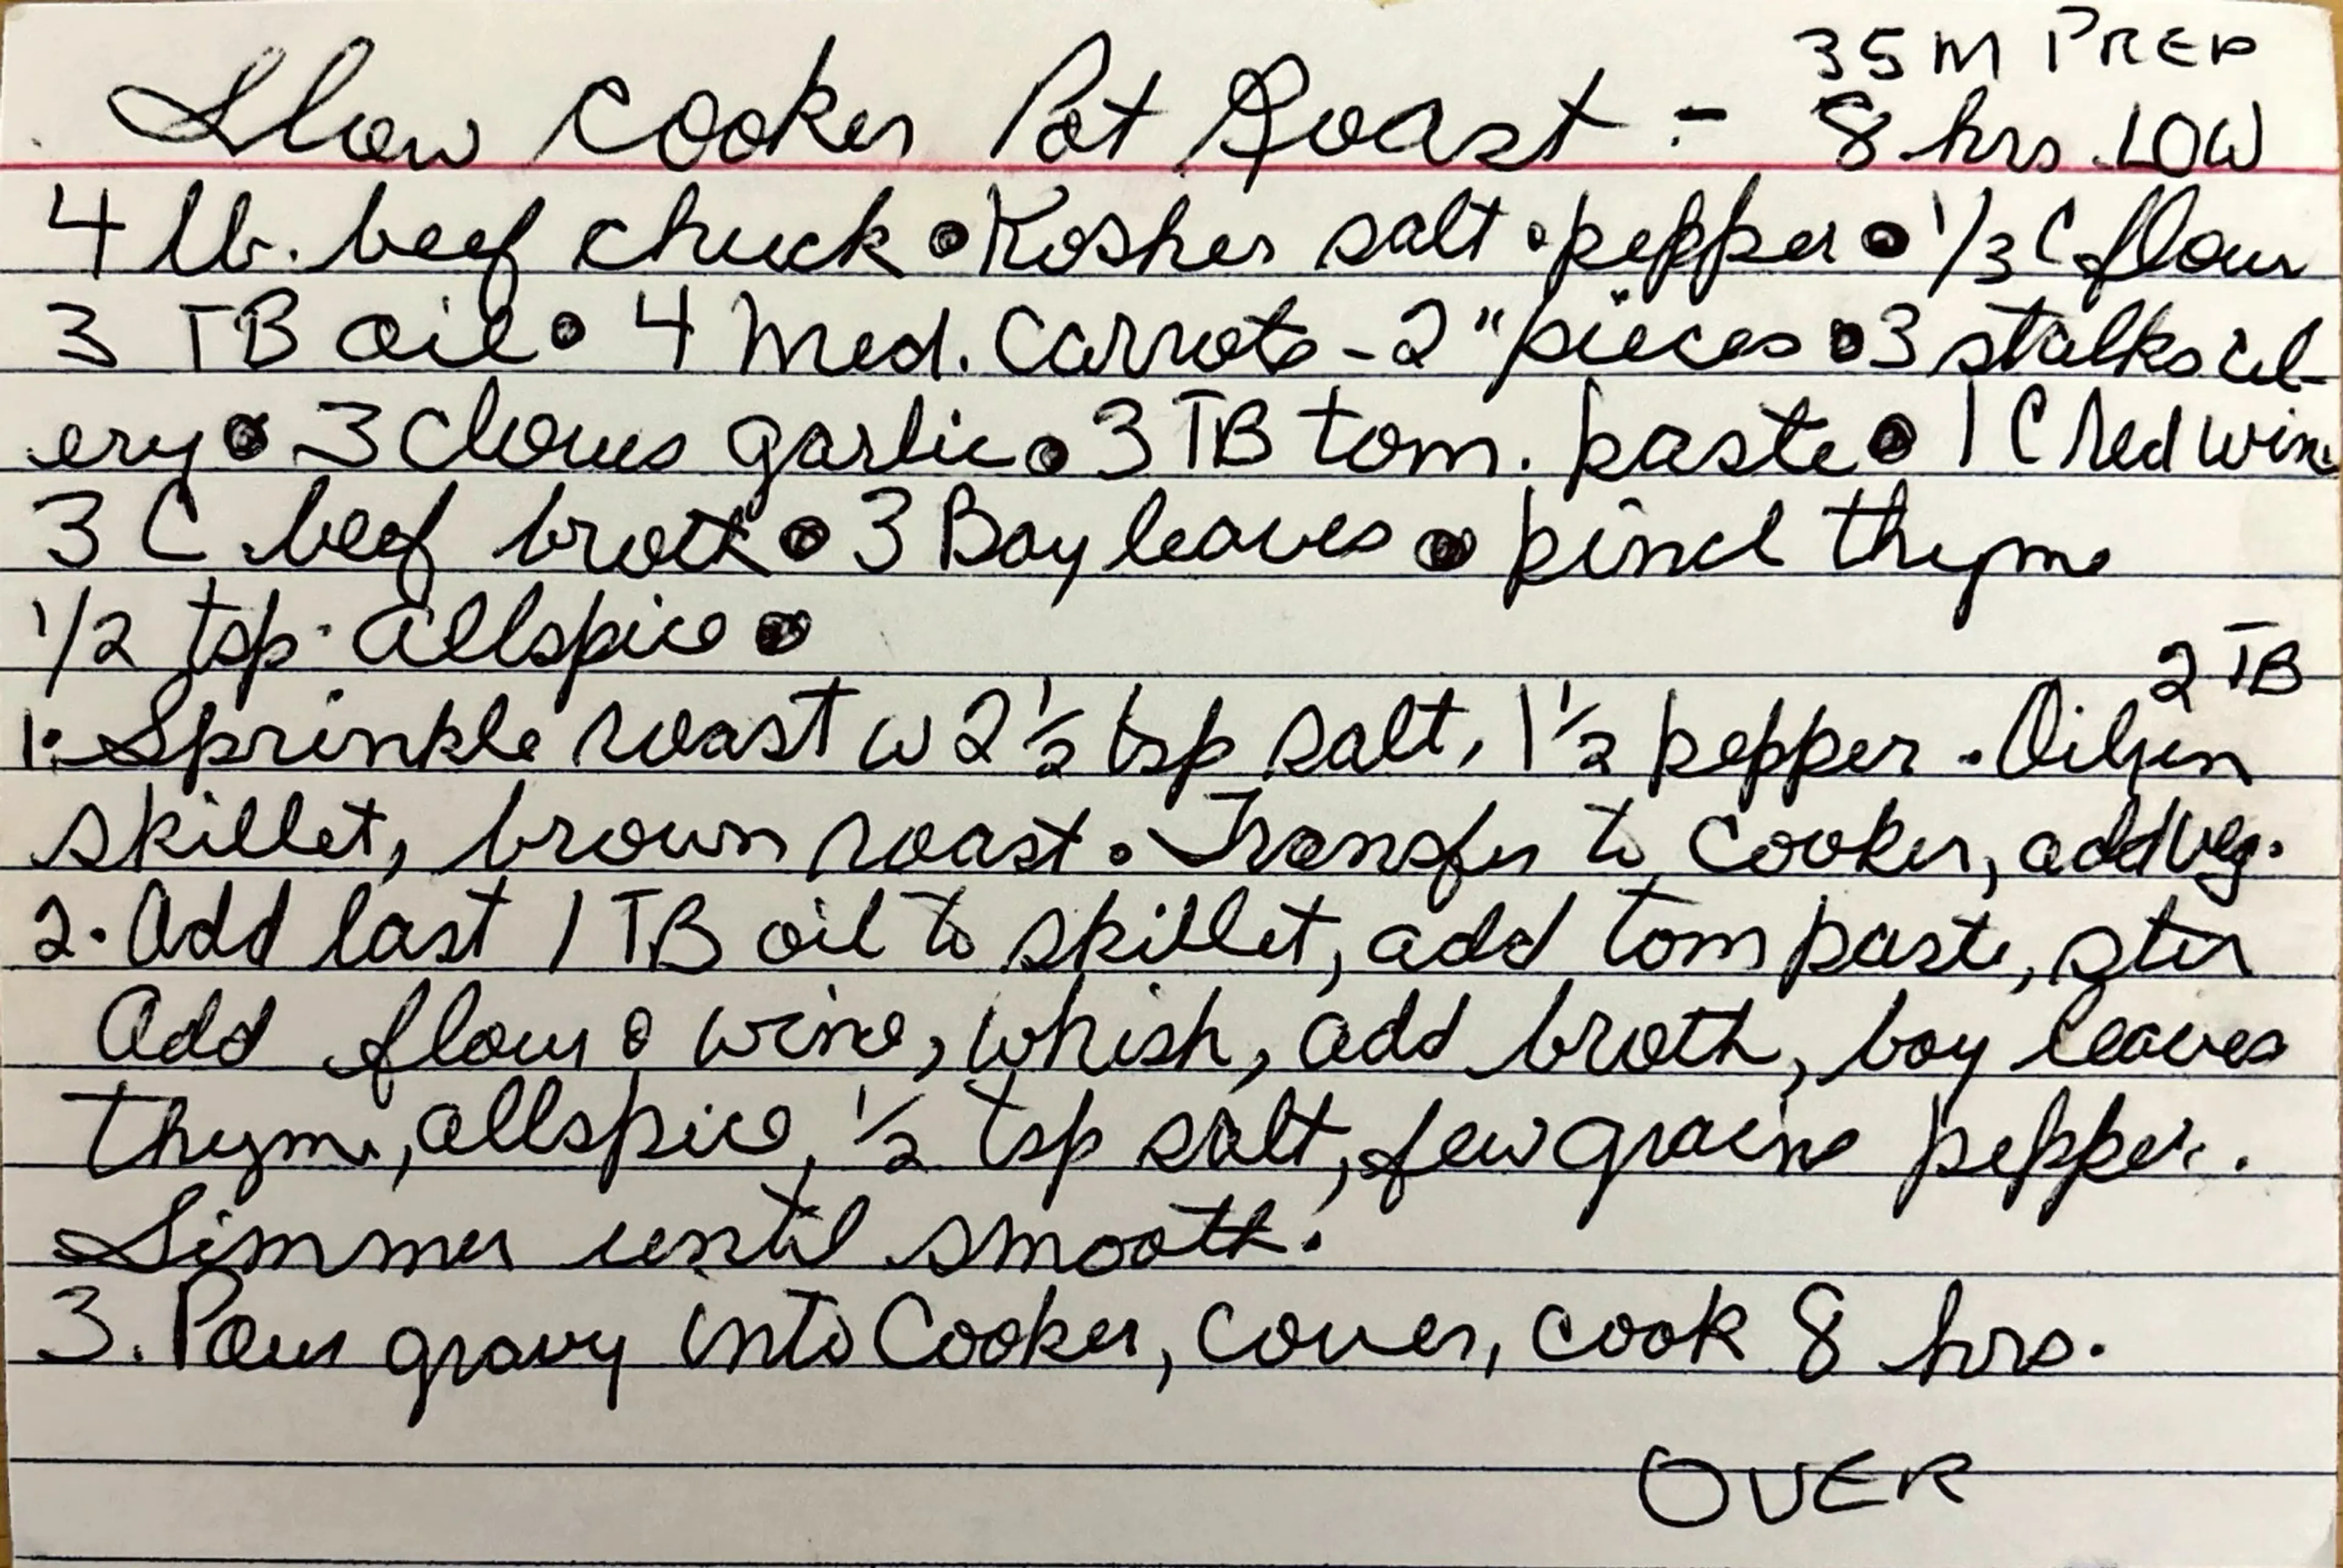 35 M PREP
Slow Cooker Pot Roast - 8 hrs LOW
4 lb. beef chuck • Kosher salt • pepper • 1/3 C flour
3 TB oil • 4 med. carrots - 2" pieces • 3 stalks cel-
ery • 3 cloves garlic • 3 TB tom. paste • 1 C red wine
3 C beef broth • 3 Bay leaves • pinch thyme
1/2 tsp. allspice •
2 TB
1. Sprinkle roast w 2 1/2 tsp salt, 1 1/2 pepper. Oil in
skillet, brown roast. Transfer to cooker, add veg.
2. Add last 1 TB oil to skillet, add tom paste, stir
Add flour & wine, whish, add broth, bay leaves
thyme, allspice, 1/2 tsp salt, few grains pepper.
Simmer until smooth.
3. Pour gravy into Cooker, cover, cook 8 hrs.
OVER